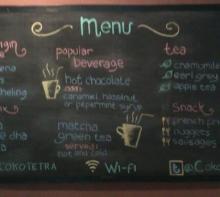 Menu
popular
beverage
hot chocolate
add:
caramel, hazelnut
or peppermint syrup
matcha
green tea
served:
hot and cold
tea
chamomile
earl grey
apple tea
Snack
french
nuggets
sausages
COKOTETRA
Wi-Fi